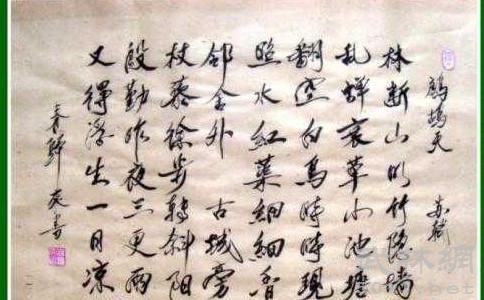 鹧鸪天 苏轼
林断山明竹隐墙
乱蝉衰草小池塘
翻空白鸟时时现
照水红蕖細細香
邨舍外 古城旁
杖藜徐步转斜阳
殷勤昨夜三更雨
又得浮生一日凉